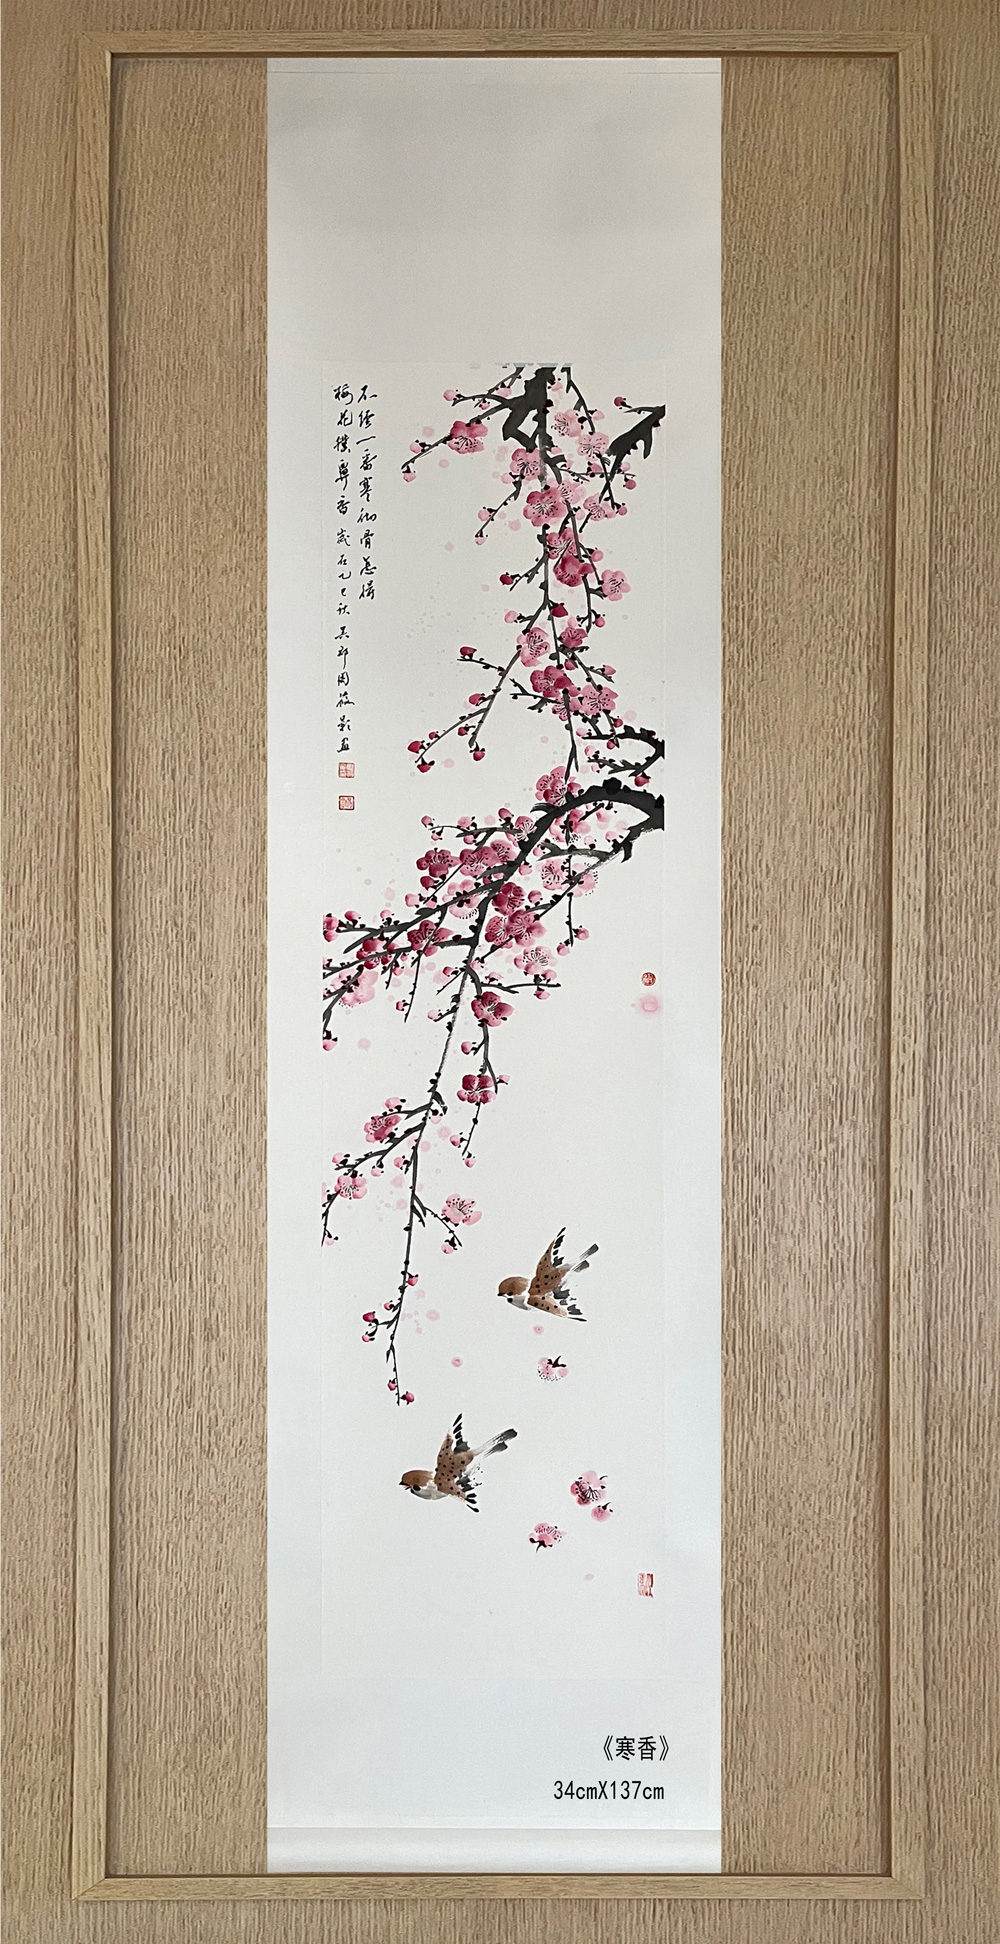 不經一番寒徹骨怎得
梅花撲鼻香 歲在乙巳秋 吴郡周筱
《寒香》
34cmX137cm